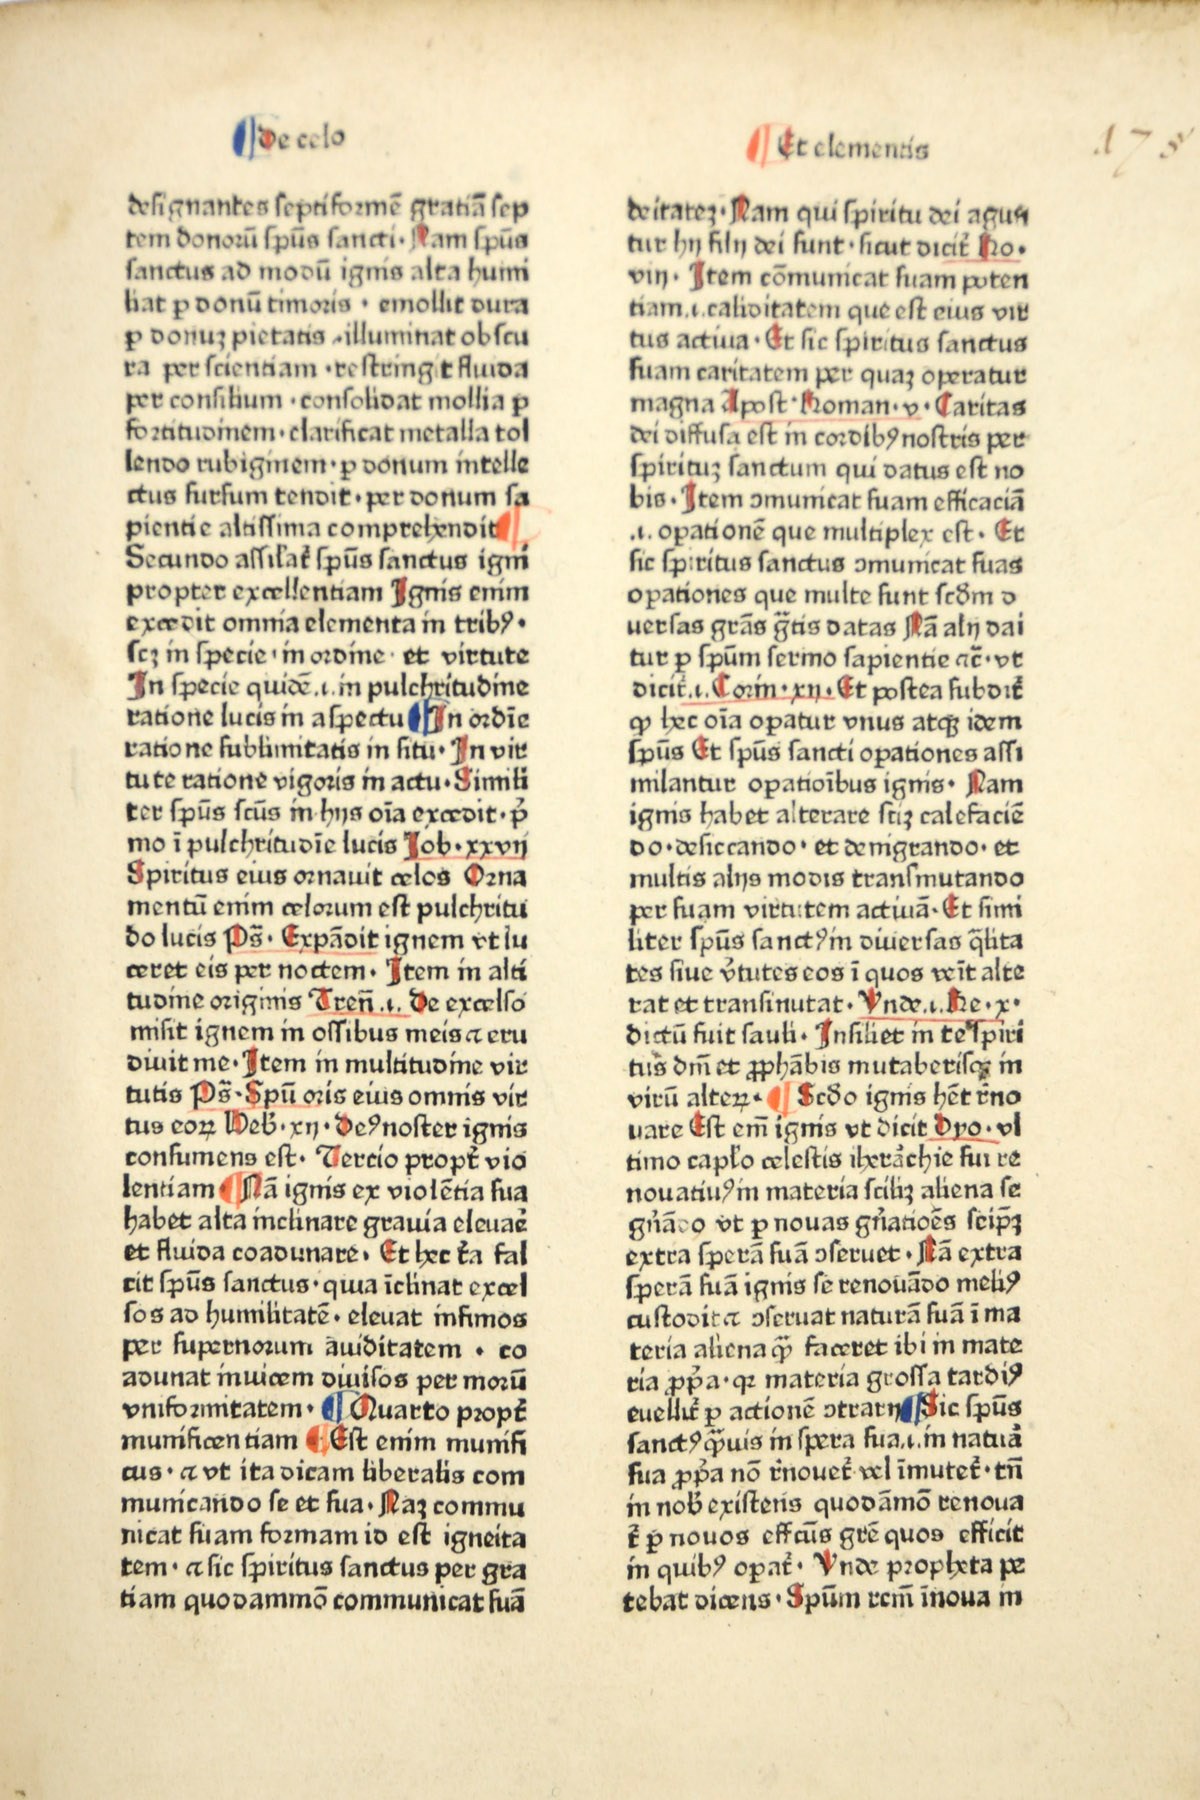 De celo
designantes septiformē gratiā sep
tem donorū spūs sancti· Nam spūs
sanctus ad modū ignis alta humi
liat p donū timoris · emollit dura
p donuꝫ pietatis ·illuminat obscu
ra per scientiam ·restringit fluida
per consilium ·consolidat mollia p
fortitudinem·clarificat metalla tol
lendo rubiginem·p donum intelle
ctus sursum tendit·per donum sa
pientie altissima comprehendit
Secundo assilať spūs sanctus igni
propter excellentiam Ignis enim
excedit omnia elementa in tribꝰ·
scꝫ in specie·in ordine· et virtute
In specie quidē.i.in pulchritudine
ratione lucis in aspectu ¶In ordīe
ratione sublimitatis in situ·In vir
tute ratione vigoris in actu·Simili
ter spūs scūs in hijs oīa excedit·pͥ
mo ī pulchritudīe lucis Job·xxvij
Spiritus eius ornauit celos Orna
mentū enim celorum est pulchritu
do lucis Ps̄· Expādit ignem vt lu
ceret eis per noctem· Item in alti
tudine originis Tren̄.i. De excelso
misit ignem in ossibus meis ⁊ eru
diuit me·Item in multitudine vir
tutis Ps̄·Spū oris eius omnis vir
tus eoꝝ Heb·xij·Deꝰnoster ignis
consumens est· Tercio propt̄ vio
lentiam ¶Nā ignis ex violētia sua
habet alta inclinare grauia eleuaē
et fluida coadunare· Et hec t̄a fal
cit spūs sanctus·quia īclinat excel
sos ad humilitatē· eleuat infimos
per supernorum auiditatem · co
adunat inuicem diuisos per morū
vniformitatem· ¶Quarto propt̄
munificentiam ¶Est enim munifi
cus·⁊ vt ita dicam liberalis com
municando se et sua·Naꝫ commu
nicat suam formam id est igneita
tem·⁊ sic spiritus sanctus per gra
tiam quodammō communicat suā
Et elementis
178
deitateꝫ·Nam qui spiritu dei agun
tur hij filij dei sunt·sicut dicit̄ Ro·
viij· Item cōmunicat suam poten
tiam.i.caliditatem que est eius vir
tus actiua·Et sic spiritus sanctus
suam caritatem per quaꝫ operatur
magna Apost·Roman·v·Caritas
dei diffusa est in cordibꝰ nostris per
spirituꝫ sanctum qui datus est no
bis·Item ꝯmunicat suam efficaciā
.i. opationē que multiplex est· Et
sic spiritus sanctus ꝯmunicat suas
opationes que multe sunt scdm d
uersas grās gr̄tis datas Nā alij dai
tur p spūm sermo sapientie ⁊c̄·vt
dicit̄.i.Corin·xij·Et postea subdit̄
ꝙ hec oīa opatur vnus atqꝫ idem
spūs Et spūs sancti opationes assi
milantur opatioībus ignis· Nam
ignis habet alterare sciꝫ calefaciē
do·desiccando· et denigrando· et
multis alijs modis transmutando
per suam virtutem actiuā·Et simi
liter spūs sanctꝰin diuersas q̄lita
tes siue v̄tutes eos ī quos veīt alte
rat et transmutat· Vnde.i.Re·x·
dictū fuit sauli· Insiliet in te spiri
tus dm̄ et ꝓphābis mutaberisqꝫ in
virū alteꝝ· ¶ Scdo ignis hēt r̄no
uare Est em̄ ignis vt dicit Dyo·vl
timo capl̓o celestis iherāchie sui re
nouatiuꝰin materia sciliꝫ aliena se
gn̄ādo vt p nouas gn̄atiōes seip̄ꝫ
extra sperā suā ꝯseruet·Nā extra
sperā suā ignis se renouādo meliꝰ
custodit ⁊ ꝯseruat naturā suā ī ma
teria aliena qꝫ̄ faceret ibi in mate
ria ꝓp̄a·qꝛ materia grossa tardiꝰ
euellit̄ p actionē ꝯtrarij ¶Sic spūs
sanctꝰ q̄uis in spera sua.i.in natuā
sua ꝓp̄a nō r̄nouet̄ vel īmutet̄·tn̄
in nob̄ existens quodāmō renoua
t̄ p nouos effcūs grē quos efficit
in quibꝰ opat̄· Vnde propheta pe
tebat dicens·Spūm rcm̄ īnoua in